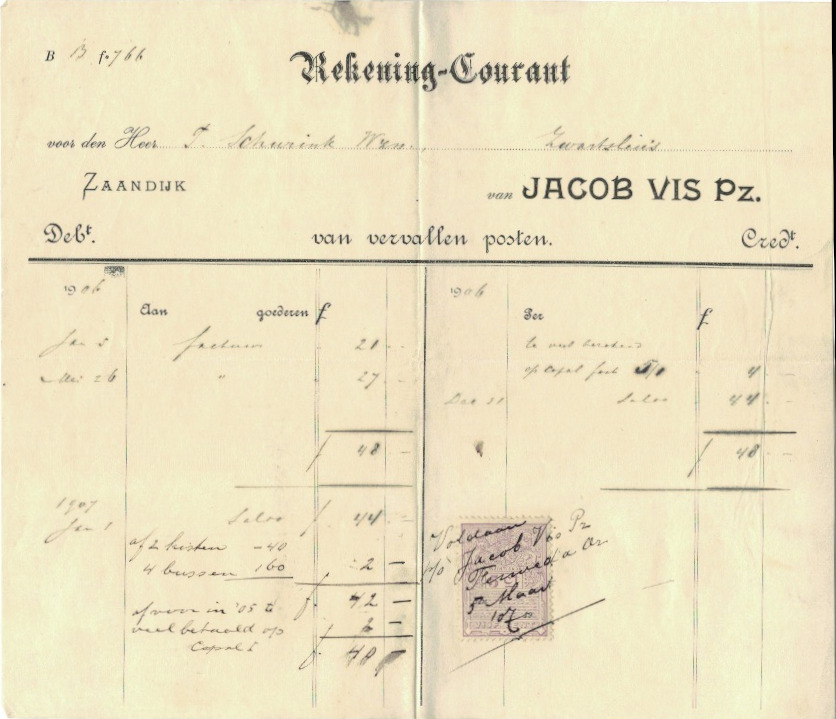 B 13 fo 766
Rekening-Courant
voor den Heer T. Schurink Wzn., Zwartsluis
ZAANDIJK van JACOB VIS Pz.
Debt. van vervallen posten. Credt.
1906
Aan goederen f
Jan 5 factuur 21 -
Mei 26 " 27 -
f 48 -
1907
Jan 1 Saldo f 44 -
af 2 kisten - 40
4 bussen 160 - 2 -
f. 42 -
afvoor in '05 te
veel betaald op f 2 -
Copal
f.
1906
Per f
te veel berekend
op Copal 4 -
Dec 31 Saldo 44 -
f 48 -
Voldaan
p/o Jacob Vis Pz
5 Maart
1907